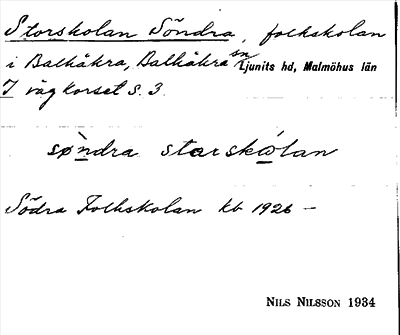 Storskolan Söndra, folkskolan
i Balkåkra, Balkåkra sn Ljunits hd, Malmöhus län
I vägkorset S. 3.
sø̀ndra storskólan
Södra Folkskolan kb 1926 –
NILS NILSSON 1934